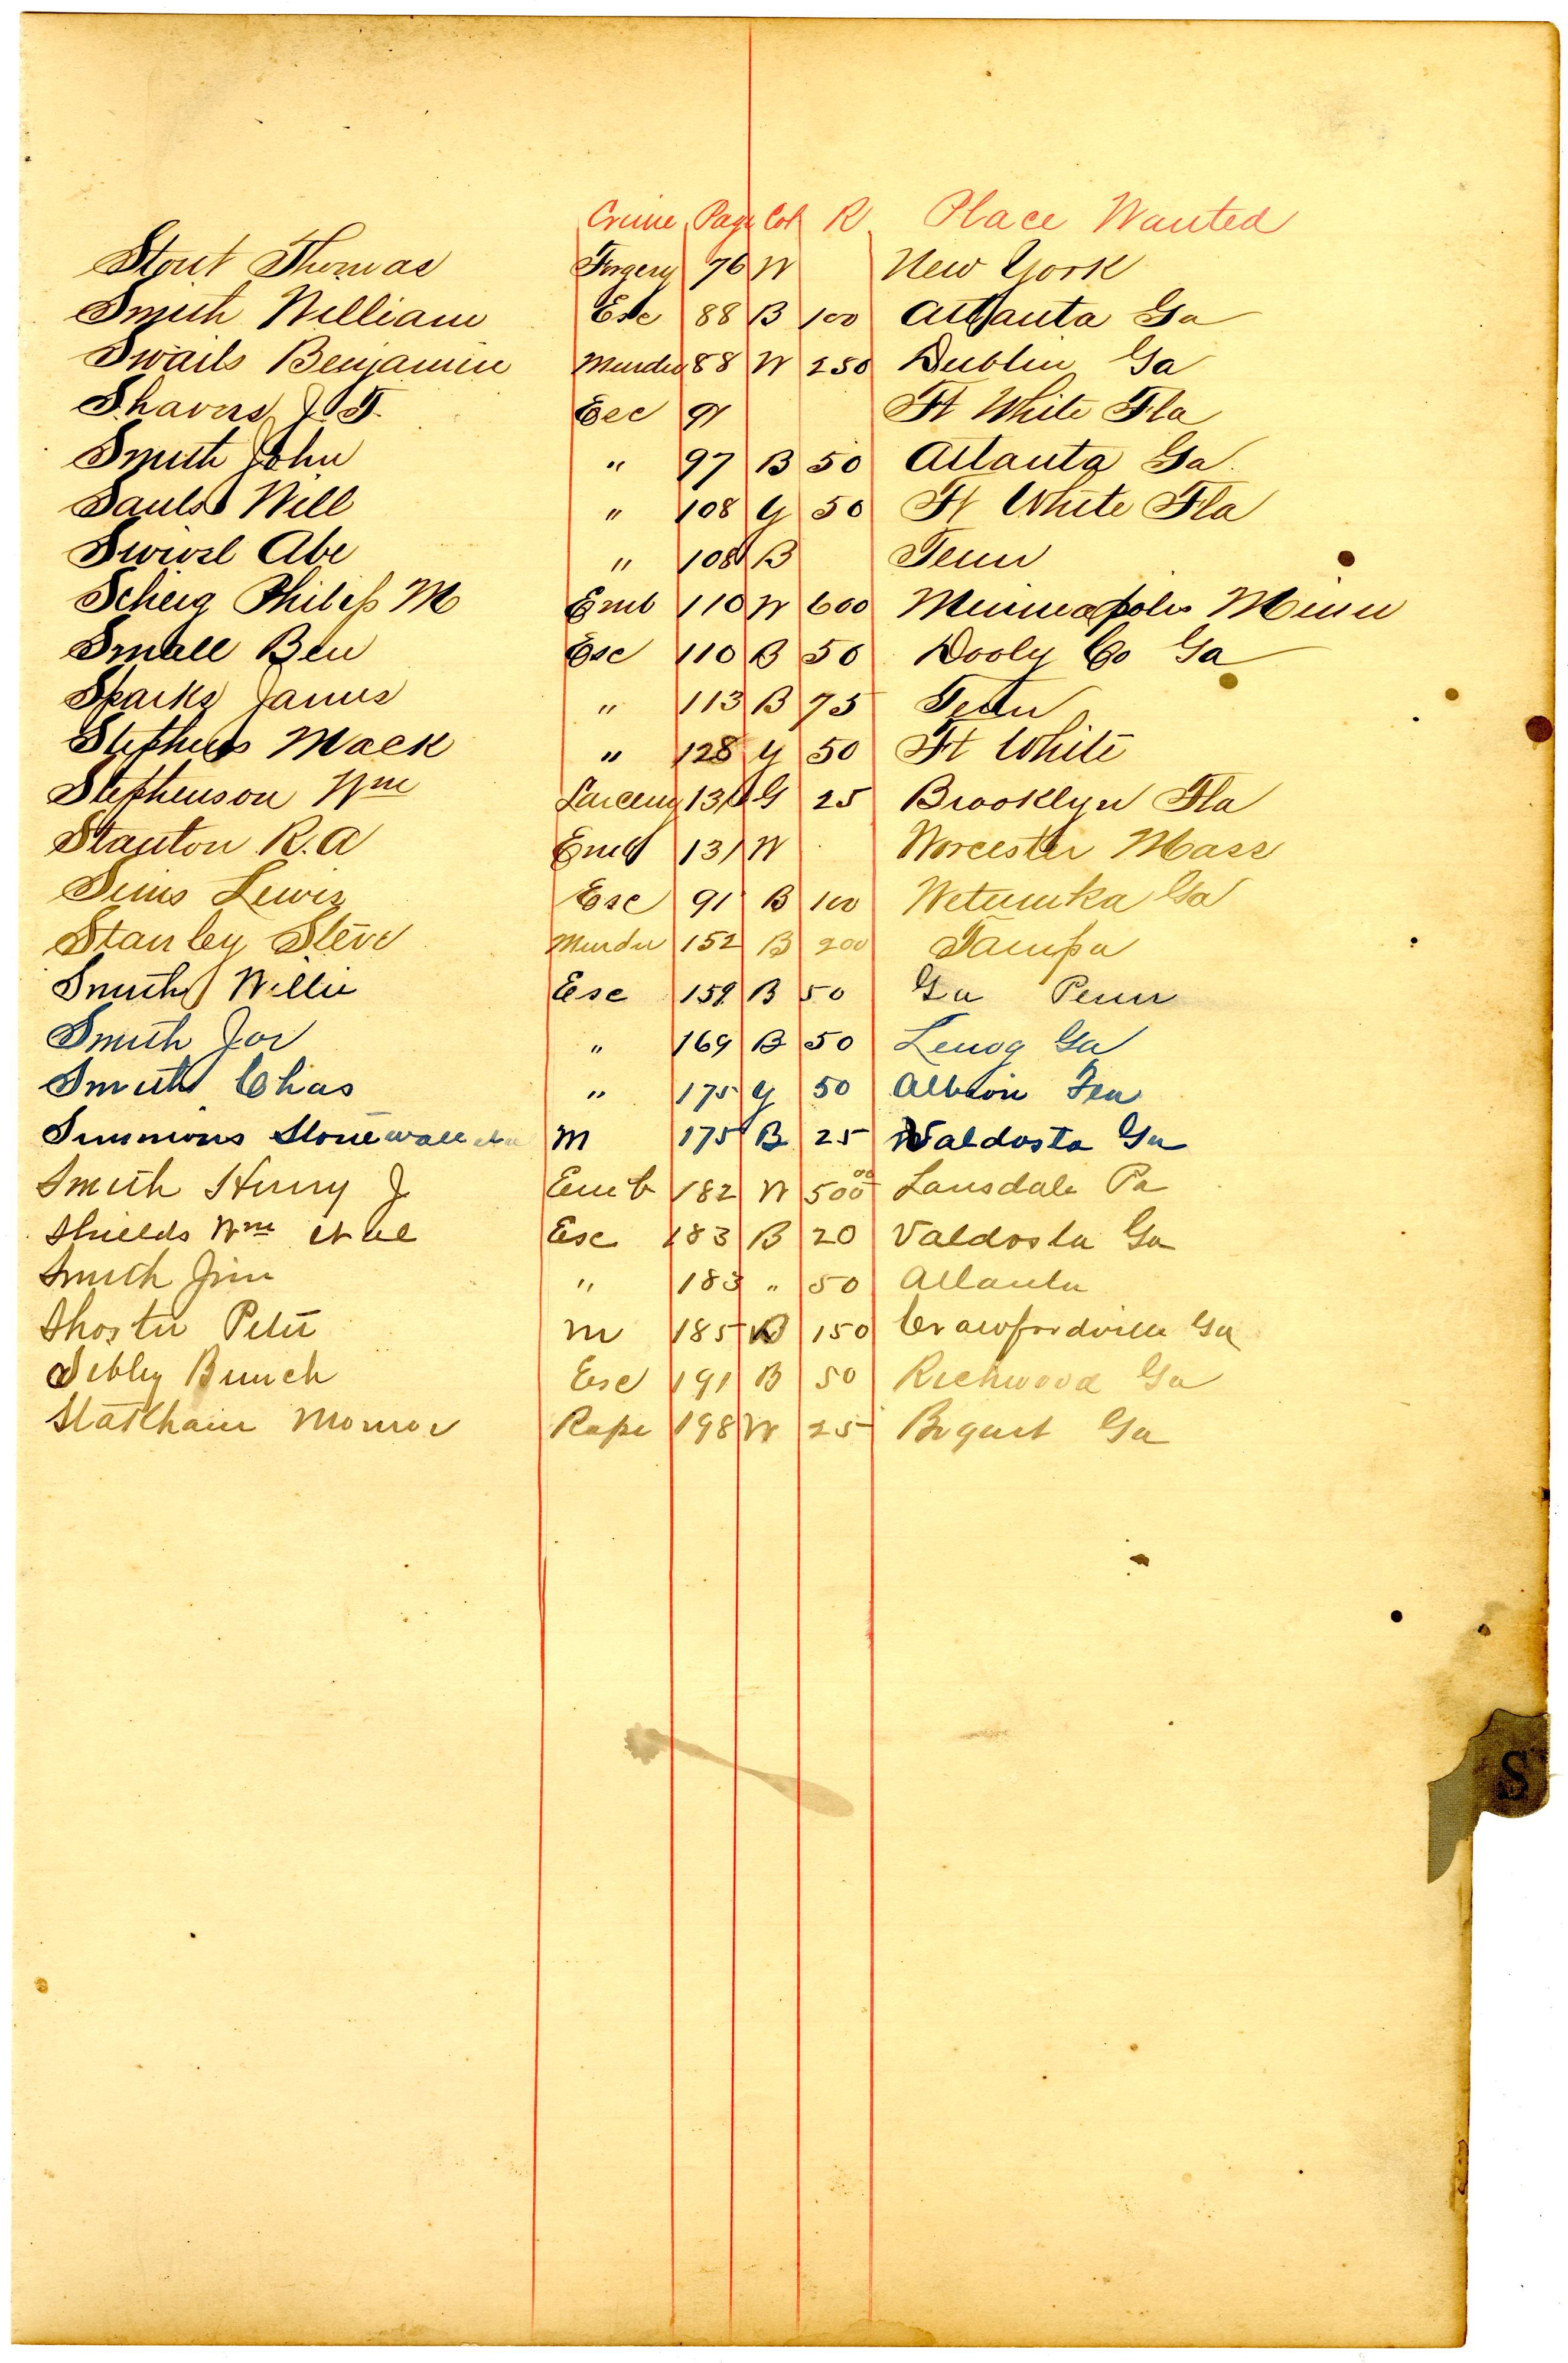 Crime Page Col R Place Wanted
Stout Thomas Forgery 76 W New York
Smith William Esc 88 B 100 Atlanta Ga
Swails Benjamin Murder 88 W 250 Dublin Ga
Shavers J. T. Esc 91 Ft White Fla
Smith John " 97 B 50 Atlanta Ga.
Sauls Will " 108 Y 50 Ft White Fla
Abe " 108 B Tenn
Philip M Emb 110 W 600 Minneapolis Minn
Small Ben Esc 110 B 50 Dooly Co Ga
Sparks James " 113 B 75 Tenn
Stephens Mack " 128 Y 50 Ft White
Stephenson Wm Larceny 131 G 25 Brooklyn Fla
Stanton R. A Emb 131 W Worcester Mass
Sims Lewis Esc 91 B 100 Wetumka Ga
Stanley Steve Murder 152 B 200 Tampa
Smith Willie Esc 159 B 50 Ga Penn
Smith Joe " 169 B 50 Lenox Ga
Smith Chas " 175 Y 50 Albion
Simmons Stonewall et al M 175 B 25 Valdosta Ga
Smith Henry J Emb 182 W 500 00 Lansdale Pa
Shields Wm et al Esc 183 B 20 Valdosta Ga
Smith Jim " 183 " 50 Atlanta
Shoster Peter M 185 150 Crawfordville Ga
Sibley Bunch Esc 191 B 50 Richwood Ga
Statham Monroe Rape 198 W 25 Bogart Ga
S